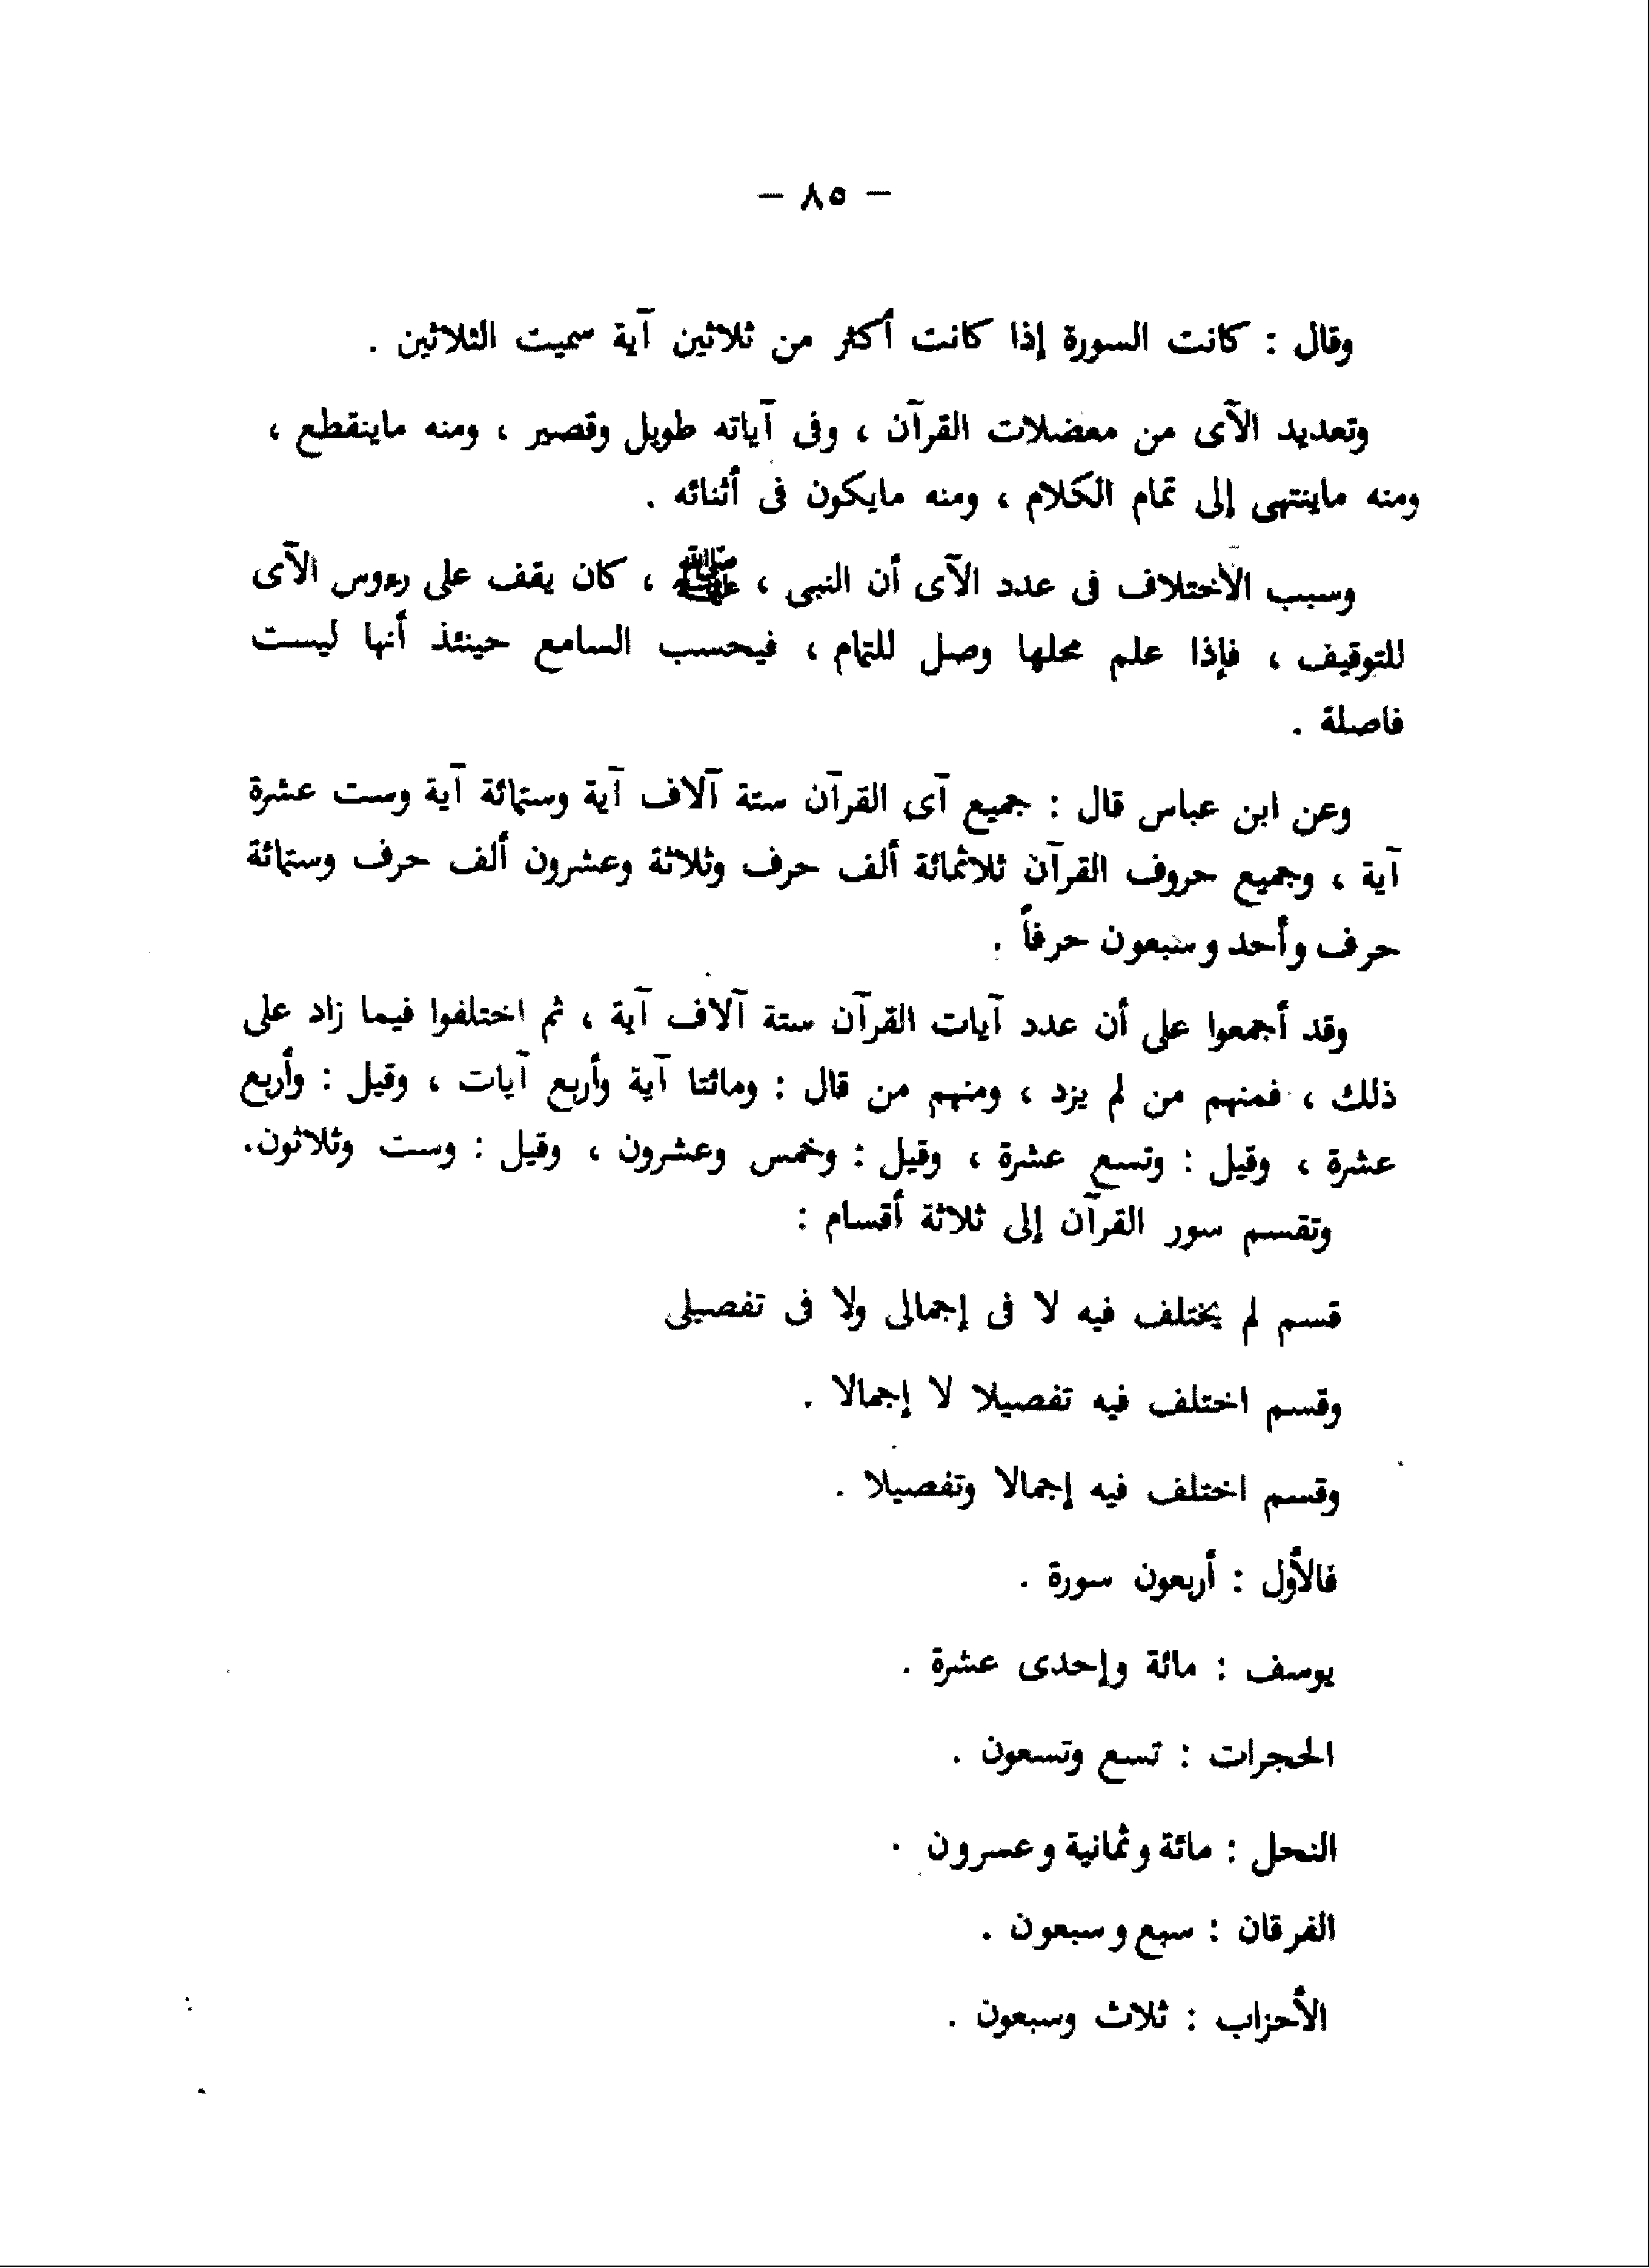 — ٨٥ —
وقال : كانت السورة إذا كانت أكثر من ثلاثين آية سميت الثلاثين .
وتعديد الآى من معضلات القرآن ، وفى آياته طويل وقصير ، ومنه ماينقطع ،
ومنه ماينتهى إلى تمام الكلام ، ومنه مايكون فى أثنائه .
وسبب الأختلاف فى عدد الآى أن النبى ، ﷺ ، كان يقف على رءوس الآى
للتوقيف ، فإذا علم محلها وصل للتمام ، فيحسب السامع حينئذ أنها ليست
فاصلة .
وعن ابن عباس قال : جميع آى القرآن ستة آلاف آية وستمائة آية وست عشرة
آية ، وجميع حروف القرآن ثلاثمائة ألف حرف وثلاثة وعشرون ألف حرف وستمائة
حرف وأحد وسبعون حرفاً .
وقد أجمعوا على أن عدد آيات القرآن ستة آلاف آية ، ثم اختلفوا فيما زاد على
ذلك ، فمنهم من لم يزد ، ومنهم من قال : ومائتا آية وأربع آيات ، وقيل : وأربع
عشرة ، وقيل : وتسع عشرة ، وقيل : وخمس وعشرون ، وقيل : وست وثلاثون.
وتقسم سور القرآن إلى ثلاثة أقسام :
قسم لم يختلف فيه لا فى إجمالى ولا فى تفصيلى
وقسم اختلف فيه تفصيلا لا إجمالا .
وقسم اختلف فيه إجمالا وتفصيلا .
فالأول : أربعون سورة .
يوسف : مائة وإحدى عشرة .
الحجرات : تسع وتسعون .
النحل : مائة وثمانية وعسرون .
الفرقان : سبع وسبعون .
الأحزاب : ثلاث وسبعون .